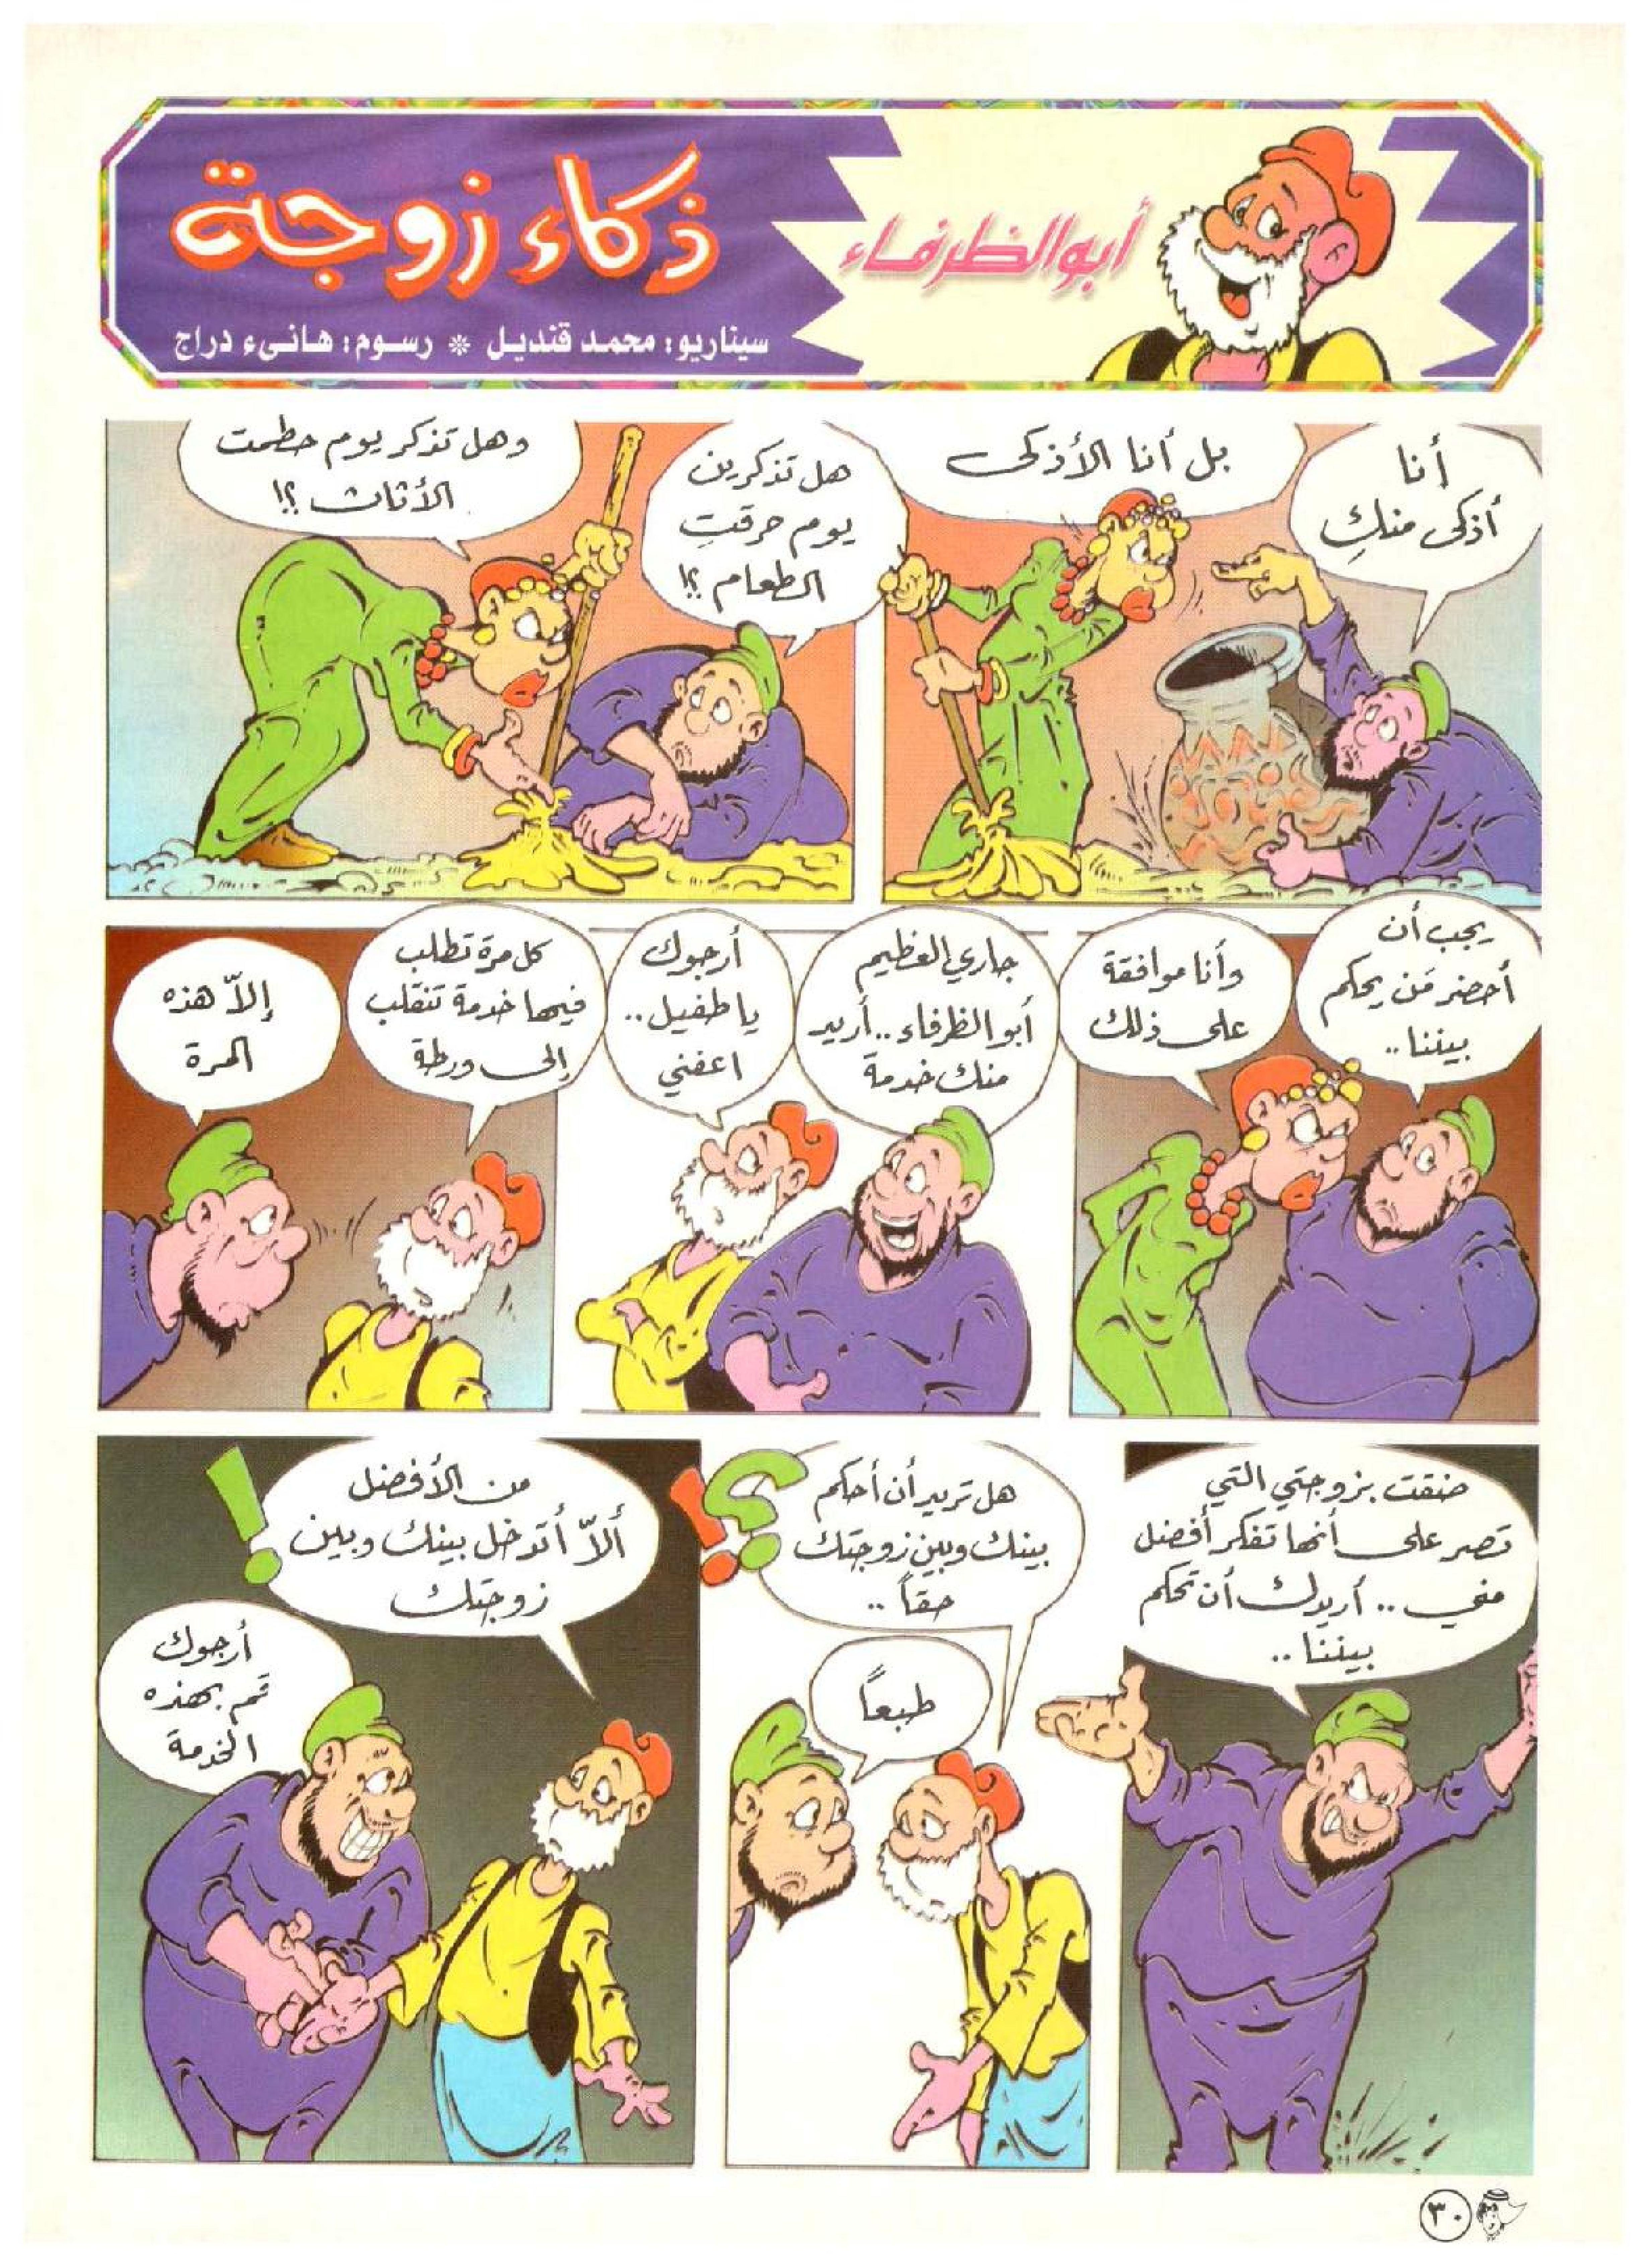 أبو الظرفاء
ذكاء زوجة
سيناريو: محمد قنديل * رسوم: هانىء دراج
أنا
أذكى منكِ
بل أنا الأذكى
هل تذكرين
يوم حرقتِ
الطعام ؟!
وهل تذكر يوم حطمت
الأثاث ؟!
يجب أن
أحضر مَن يحكم
بيننا ..
وأنا موافقة
على ذلك
جاري العظيم
أبو الظرفاء .. أريد
منك خدمة
أرجوك
يا طفيل ..
اعفني
كل مرة تطلب
فيها خدمة تنقلب
إلى ورطة
إلاّ هذه
المرة
ضقت بزوجتي التي
تصر على أنها تفكر أفضل
مني .. أريدك أن تحكم
بيننا ..
هل تريد أن أحكم
بينك وبين زوجتك
حقاً ..
؟!
طبعاً
من الأفضل
ألاّ أتدخل بينك وبين
زوجتك
!
أرجوك
قم بهذه
الخدمة
٣٠